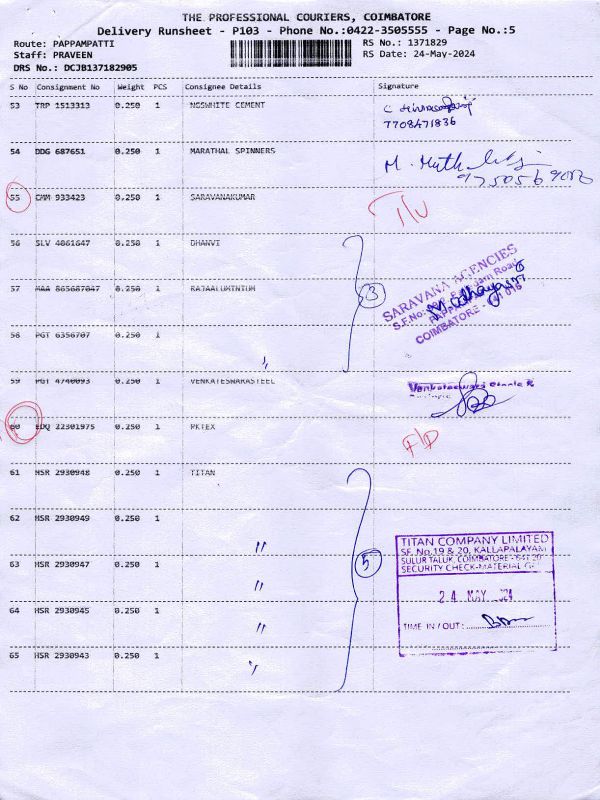 THE PROFESSIONAL COURIERS, COIMBATORE
Delivery Runsheet - P103 - Phone No.:0422-3505555 - Page No.:5
Route: PAPPAMPATTI RS No.: 1371829
Staff: PRAVEEN RS Date: 24-May-2024
DRS No.: DCJB137182905
S No Consignment No Weight PCS Consignee Details Signature
53 TRP 1513313 0.250 1 NGSWHITE CEMENT
7708471836
54 DDG 687651 0.250 1 MARATHAL SPINNERS M.
9750569086
55 CMM 933423 0.250 1 SARAVANAKUMAR
56 SLV 4061647 0.250 1 DHANVI
57 MAA 865687047 0.250 1 RAJAALUMINIUM
3
SARAVANA AGENCIES
COIMBATORE
58 PGT 6356707 0.250 1 "
59 PGT 4740093 0.250 1 VENKATESWARASTEEL
60 EDQ 22301975 0.250 1 PKTEX
61 HSR 2930948 0.250 1 TITAN
62 HSR 2930949 0.250 1 "
63 HSR 2930947 0.250 1 "
5
TITAN COMPANY LIMITED
SF. No.19 & 20, KALLAPALAYAM
SULUR TALUK, COIMBATORE
SECURITY CHECK-MATERIAL
24 MAY
TIME IN / OUT :
64 HSR 2930945 0.250 1 "
65 HSR 2930943 0.250 1 "